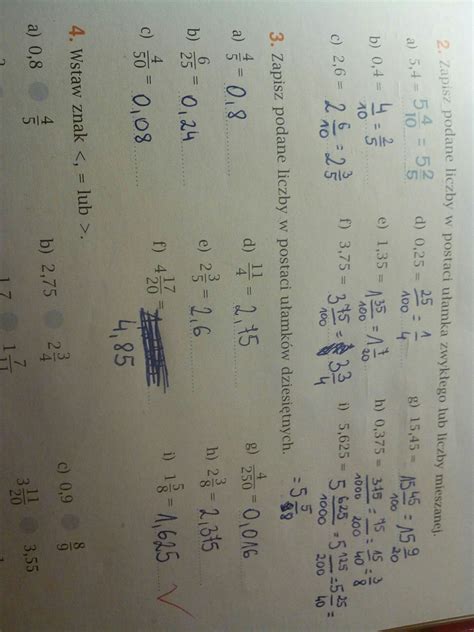 2. Zapisz podane liczby w postaci ułamka zwykłego lub liczby mieszanej.
a) 5,4 = 5 4/10 = 5 2/5 d) 0,25 = 25/100 = 1/4 g) 15,45 = 15 45/100 = 15 9/20
b) 0,4 = 4/10 = 2/5 e) 1,35 = 1 35/100 = 1 7/20 h) 0,375 = 375/1000 = 75/200 = 15/40 = 3/8
c) 2,6 = 2 6/10 = 2 3/5 f) 3,75 = 3 75/100 = 3 3/4 i) 5,625 = 5 625/1000 = 5 125/200 = 5 25/40 =
= 5 5/8
3. Zapisz podane liczby w postaci ułamków dziesiętnych.
a) 4/5 = 0,8 d) 11/4 = 2,75 g) 4/250 = 0,016
b) 6/25 = 0,24 e) 2 3/5 = 2,6 h) 2 3/8 = 2,375
c) 4/50 = 0,08 f) 4 17/20 = 4,85 i) 1 5/8 = 1,625
4. Wstaw znak <, = lub >.
a) 0,8 4/5 b) 2,75 2 3/4 c) 0,9 8/9
3 11/20 3,55